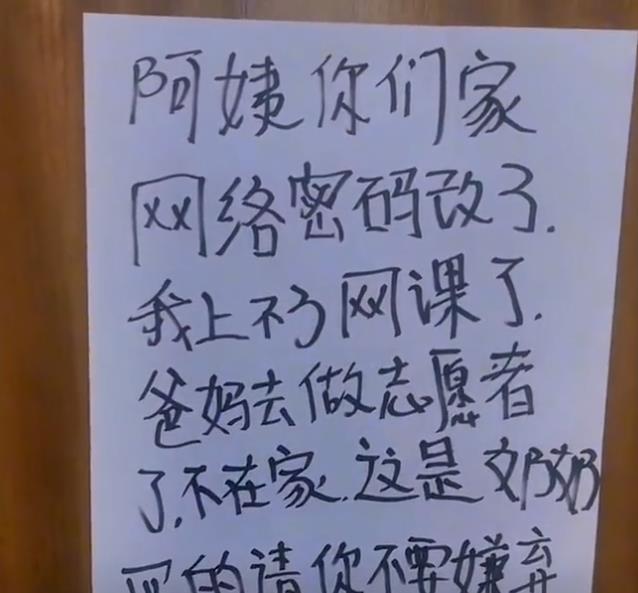 阿姨你们家
网络密码改了.
我上不了网课了.
爸妈去做志愿者
了.不在家.这是奶奶
买的请你不要嫌弃